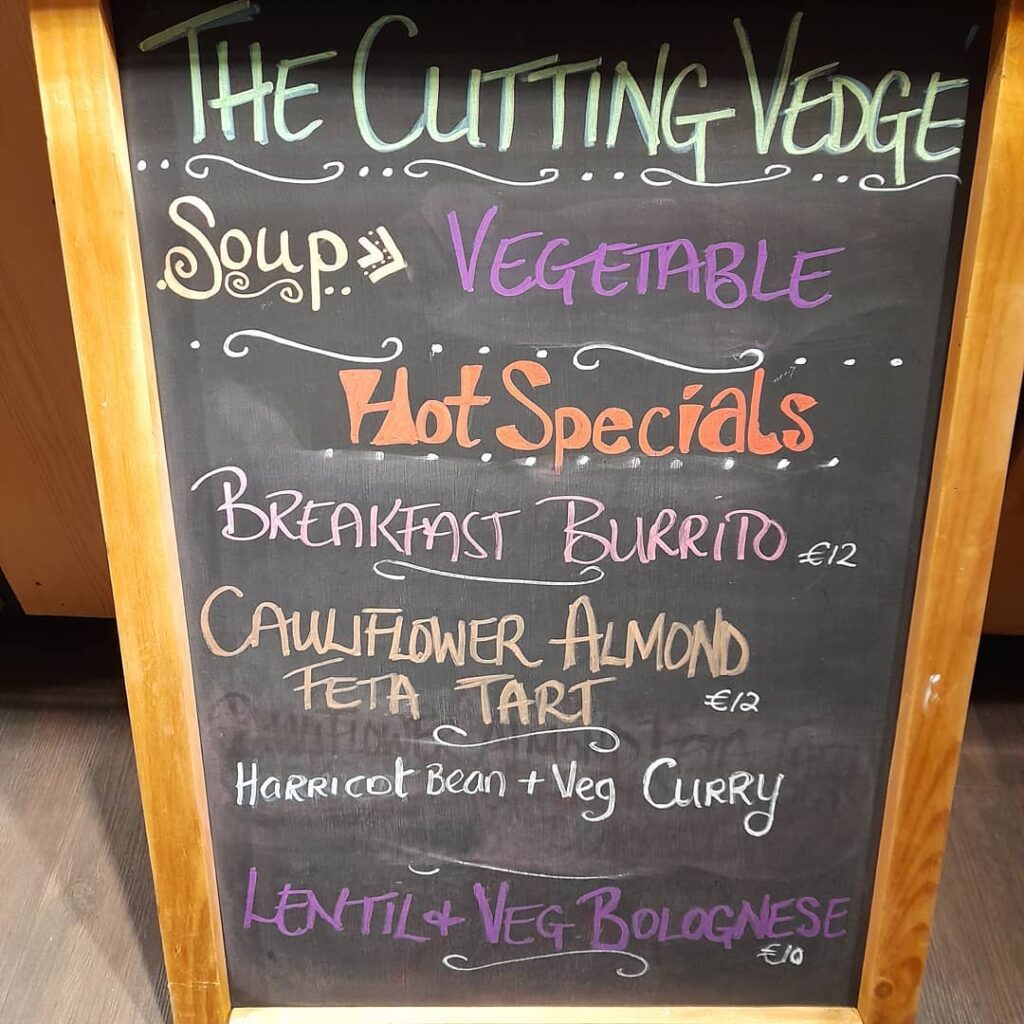 THE CUTTING VEDGE
Soup >> VEGETABLE
Hot Specials
BREAKFAST BURRITO €12
CAULIFLOWER ALMOND
FETA TART €12
HARRICOT BEAN + VEG CURRY
LENTIL + VEG BOLOGNESE
€10